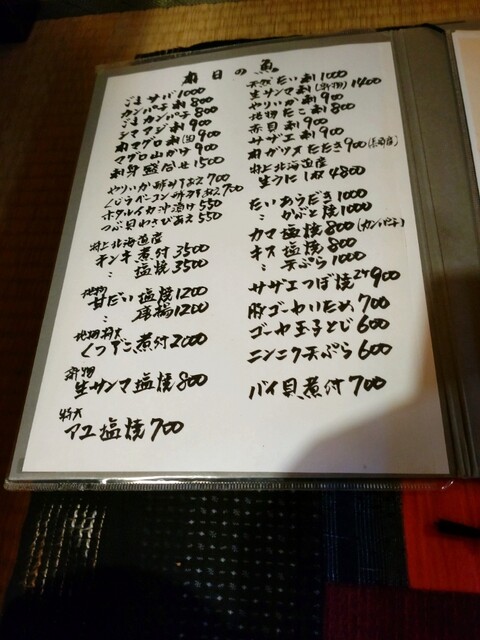 本日の魚
ごまサバ 1000
カンパチ刺 800
ごまカンパチ 800
シマアジ刺 900
本マグロ刺 900
マグロ山かけ 900
刺身盛合せ 1500
やりいか酢みそあえ 700
くじらベーコン酢みそあえ 700
ホタルイカ沖漬け 550
つぶ貝わさびあえ 550
特上北海道産
キンキ煮付 3500
〃 塩焼 3500
地物
甘だい塩焼 1200
〃 唐揚 1200
地物特大
くつぞこ煮付 2000
新物
生サンマ塩焼 800
特大
アユ塩焼 700
天然たい刺 1000
生サンマ刺(新物) 1400
やりいか刺 900
地物たこ刺 800
赤貝刺 900
サザエ刺 900
本ガツオたたき 900
特上北海道産
生うに 4800
たいあらだき 1000
〃 かぶと焼 1000
カマ塩焼 800(カンパチ)
キス塩焼 800
〃 天ぷら 1000
サザエつぼ焼 2ケ 900
豚ゴーヤいため 700
ゴーヤ玉子とじ 600
ニンニク天ぷら 600
バイ貝煮付 700